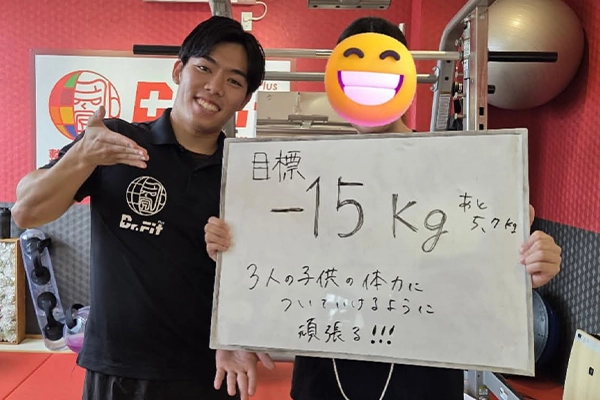 目標
-15 kg
あと
5.7kg
3人の子供の体力に
ついていけるように
頑張る!!!
Dr.Fit